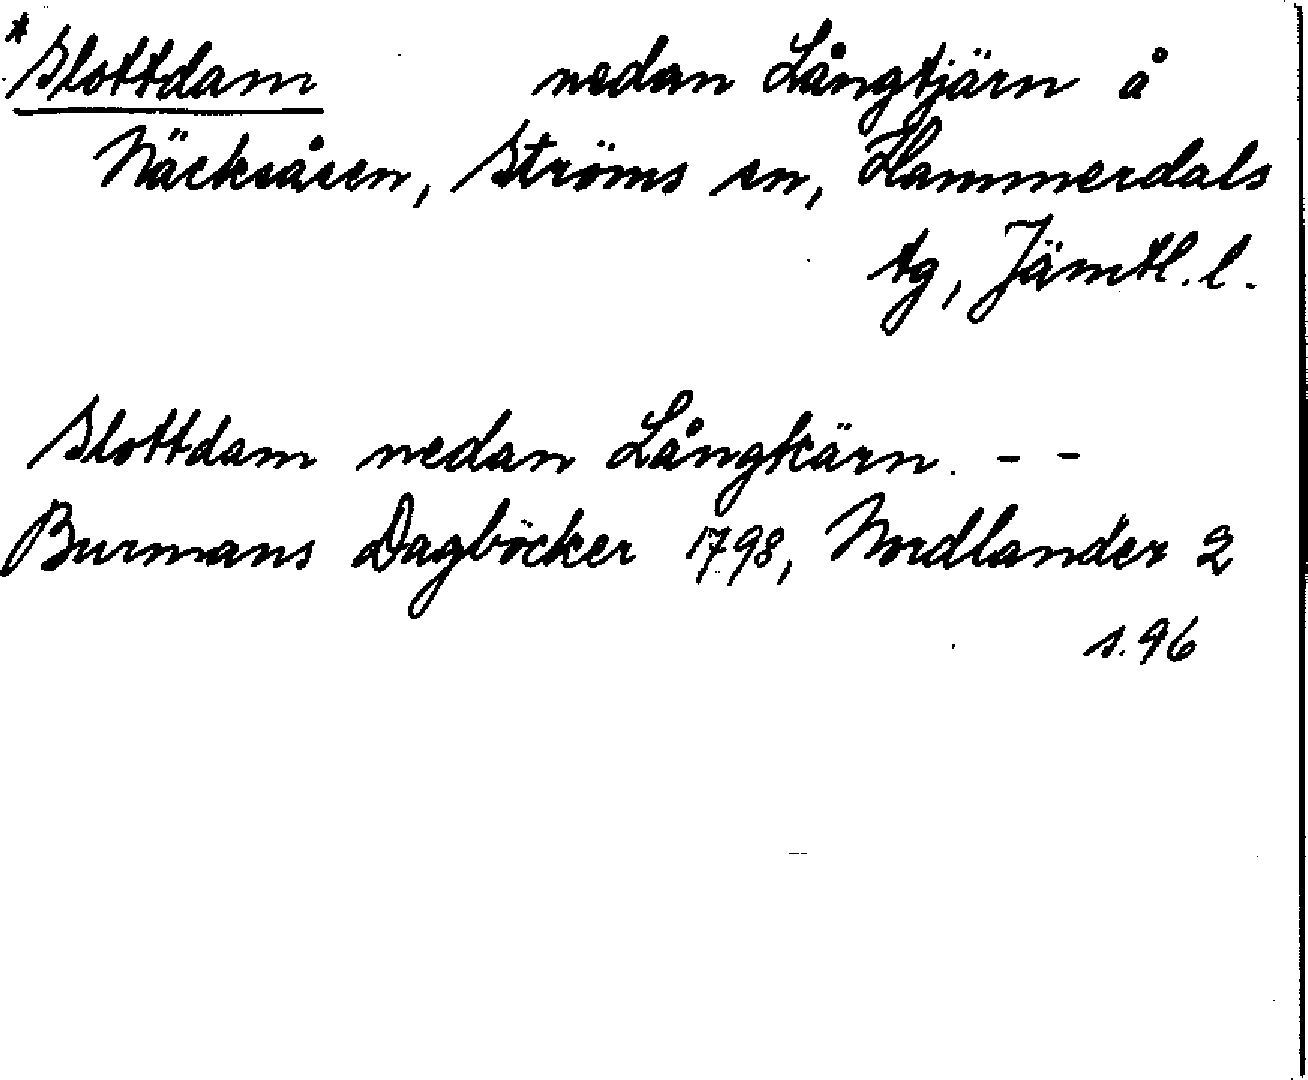 *Slottdam nedan Långtjärn å
Näcksåsen, Ströms sn, Hammerdals
tg, Jämtl. l.
Slottdam nedan Långkärn. - -
Burmans Dagböcker 1798, Nordlander 2
s. 96